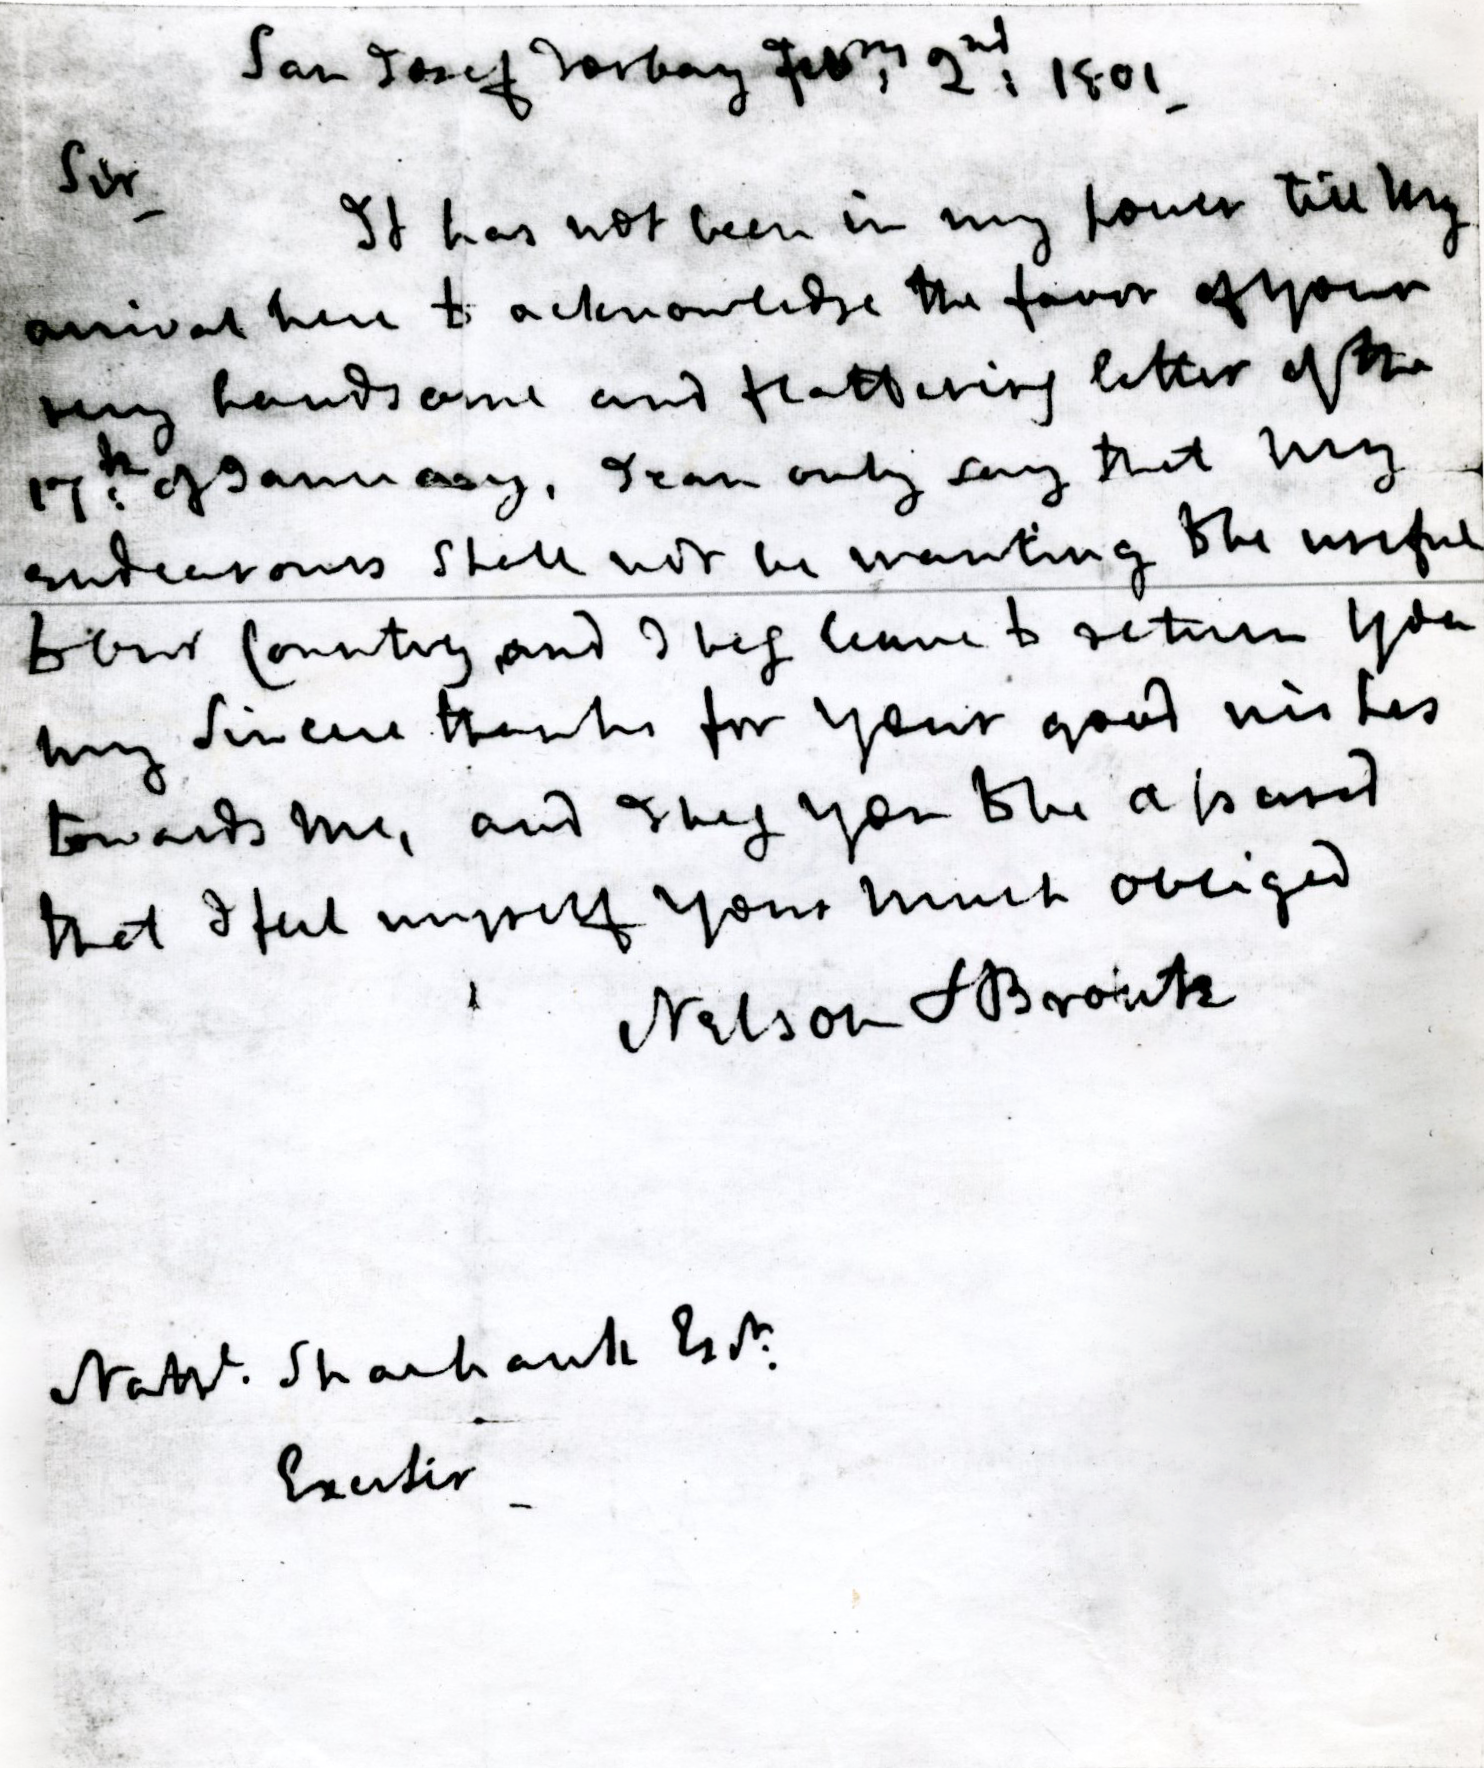 San Josef Torbay Febry: 2nd: 1801
Sir
It has not been in my power till my
arrival here to acknowledge the favor of your
very handsome and flattering letter of the
17th: of January, I can only say that my
endeavours shall not be wanting to be useful
to our Country, and I beg leave to return you
my sincere thanks for your good wishes
towards me, and I beg you to be assured
that I feel myself your much obliged
Nelson & Bronte
Nathl. Esqr:
Exeter